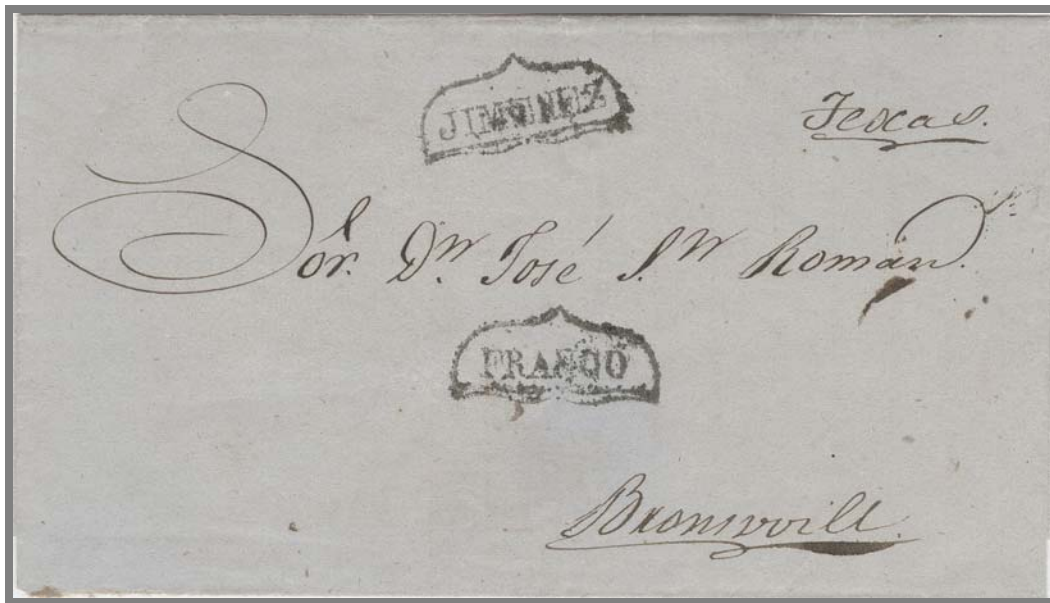 JIMENEZ
Texcas.
Sor. Dn. José Sn. Román.
FRANCO
Bronsvill